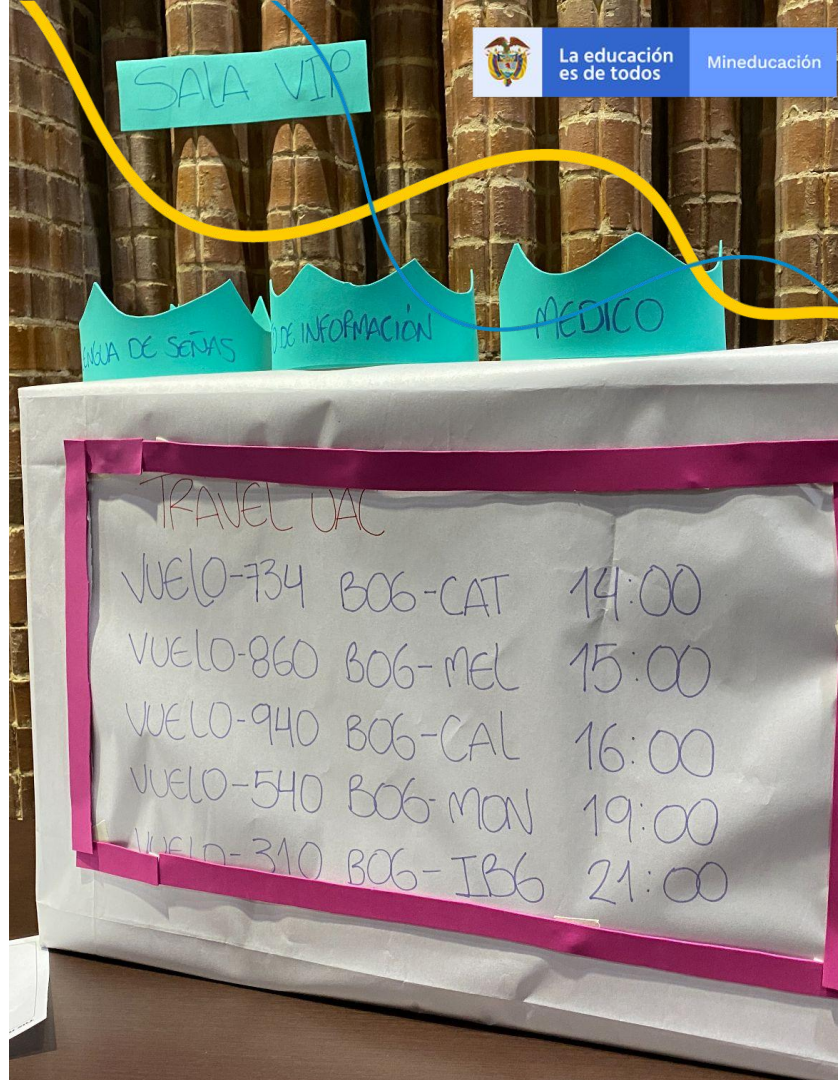 La educación
es de todos
Mineducación
SALA VIP
ENGUA DE SEÑAS
O DE INFORMACIÓN
MEDICO
TRAVEL UAC
VUELO-734 BOG-CAT 14:00
VUELO-860 BOG-MEL 15:00
VUELO-940 BOG-CAL 16:00
VUELO-540 BOG-MON 19:00
VUELO-310 BOG-IBG 21:00